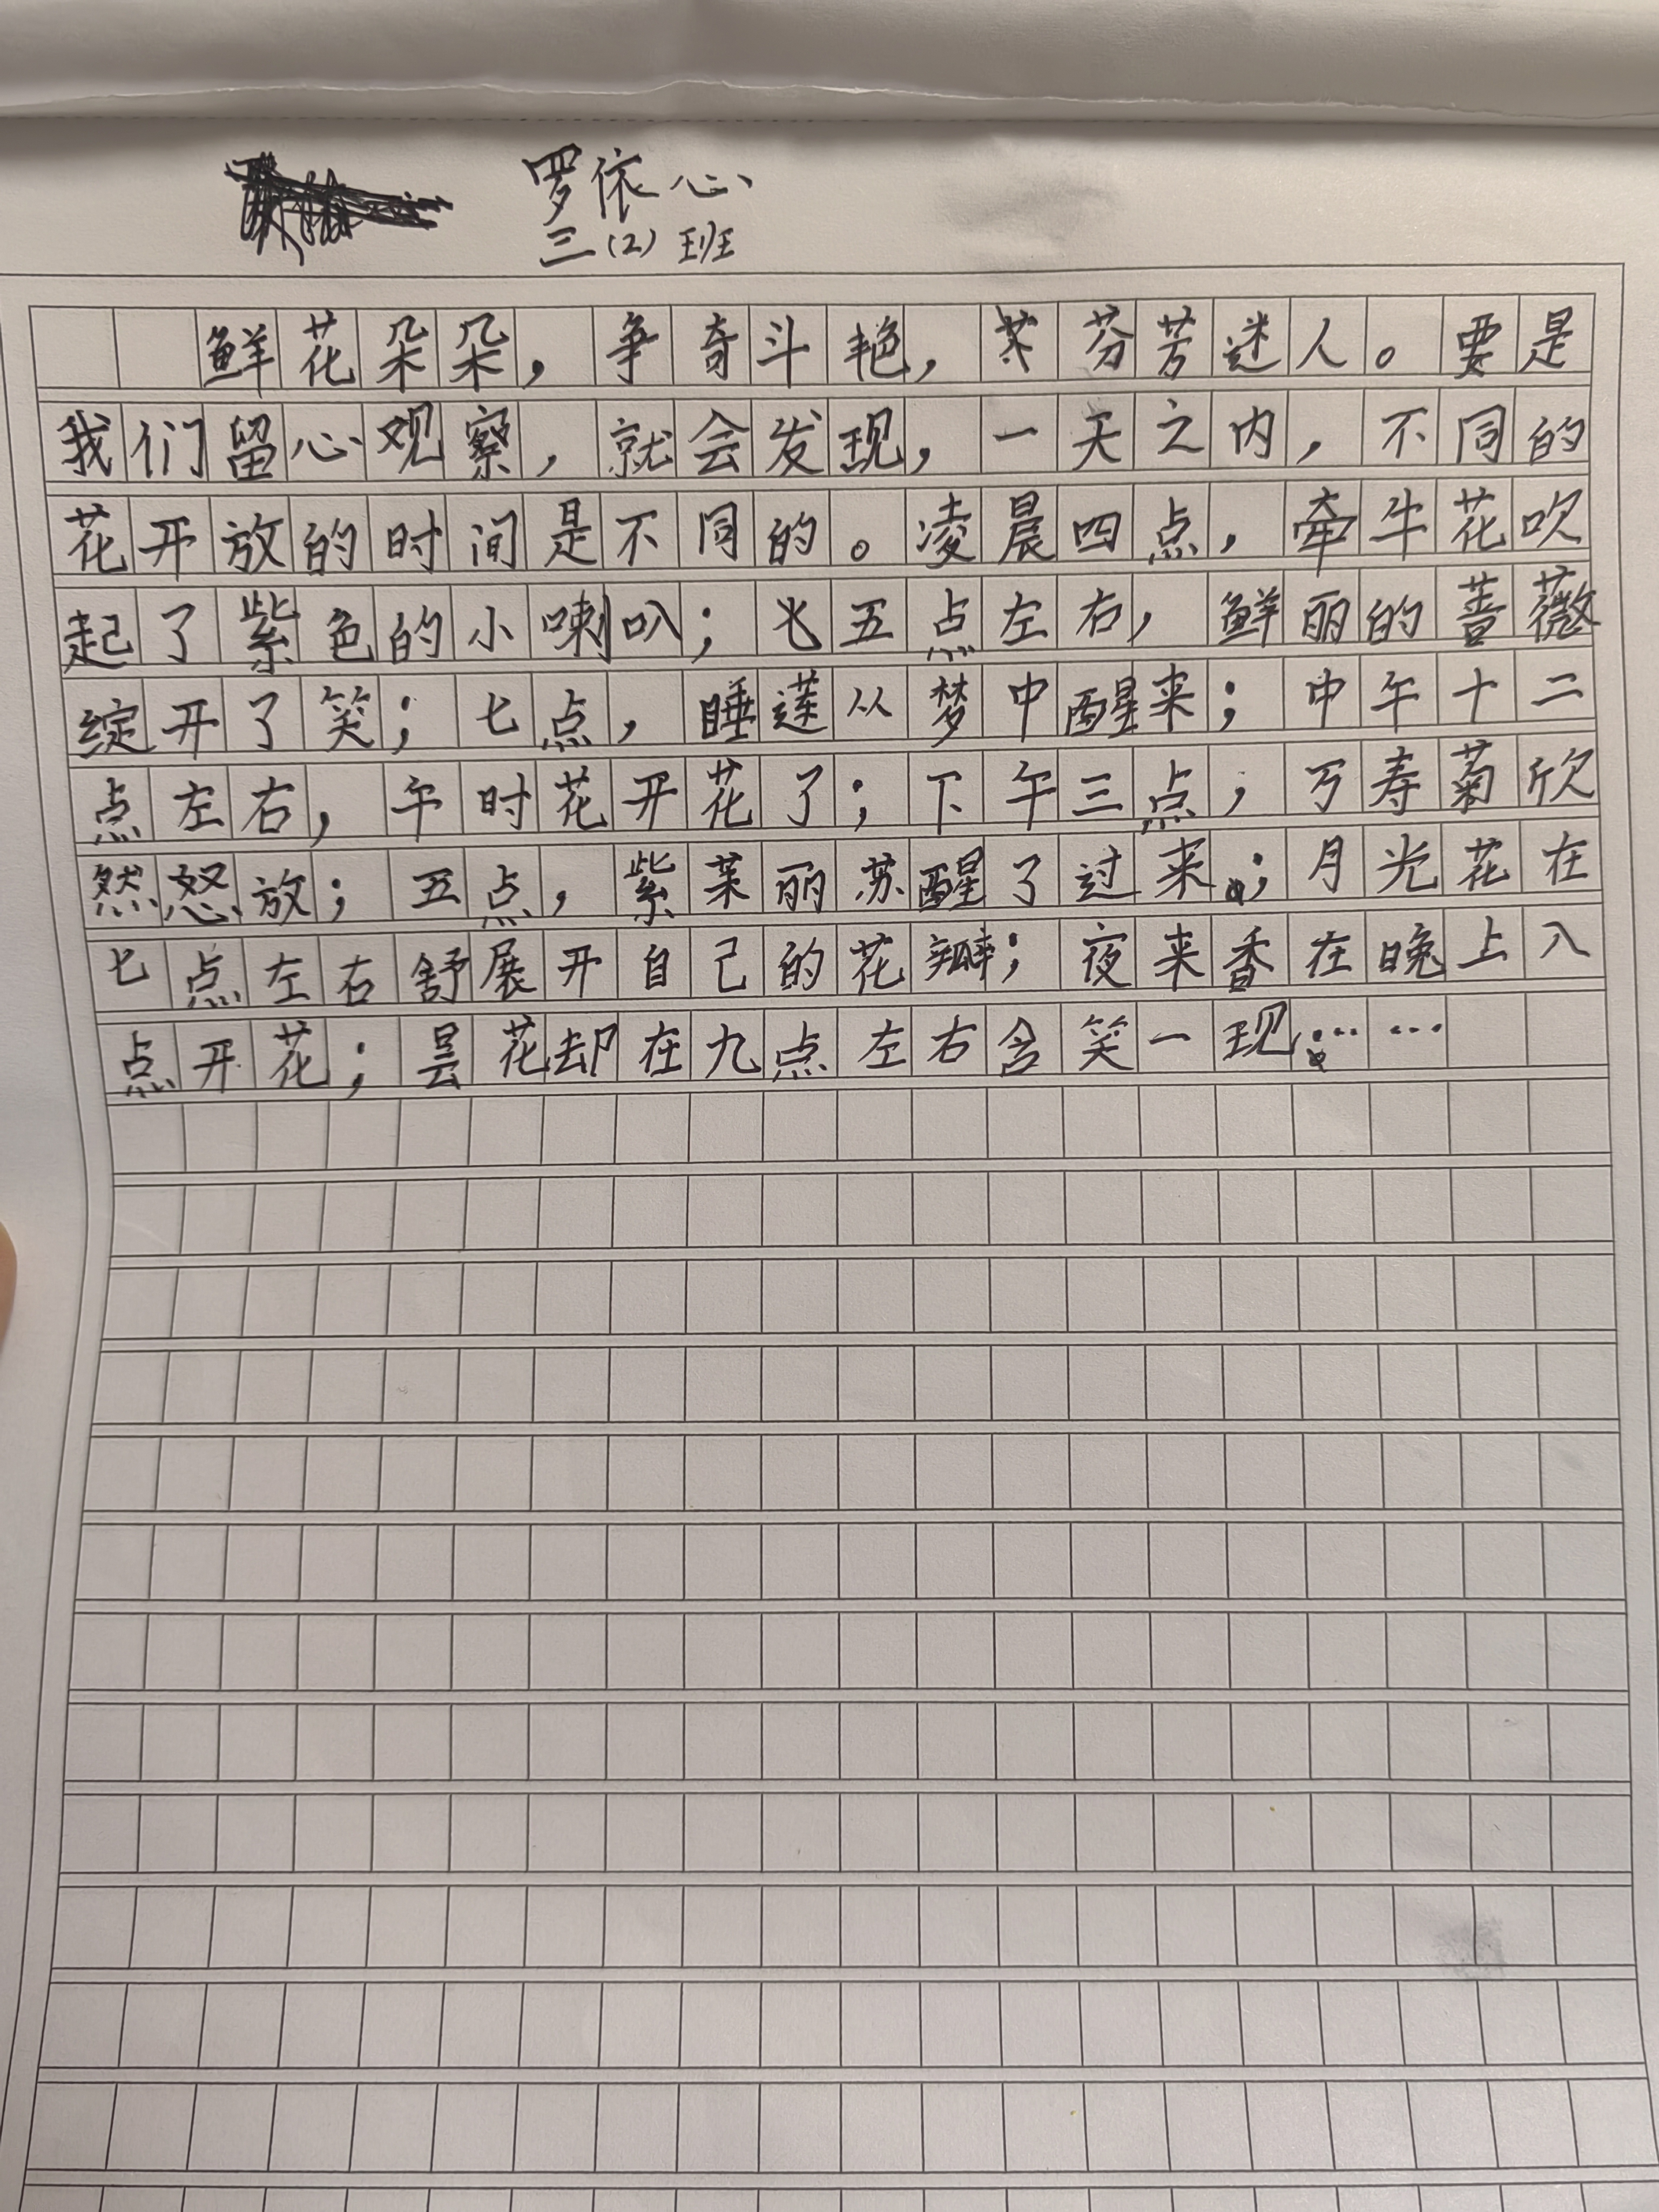 罗依心
三(2)班
鲜花朵朵，争奇斗艳，芬芳迷人。要是
我们留心观察，就会发现，一天之内，不同的
花开放的时间是不同的。凌晨四点，牵牛花吹
起了紫色的小喇叭；五点左右，鲜丽的蔷薇
绽开了笑；七点，睡莲从梦中醒来；中午十二
点左右，午时花开花了；下午三点，万寿菊欣
然怒放；五点，紫茉丽苏醒了过来；月光花在
七点左右舒展开自己的花瓣；夜来香在晚上八
点开花；昙花却在九点左右含笑一现……